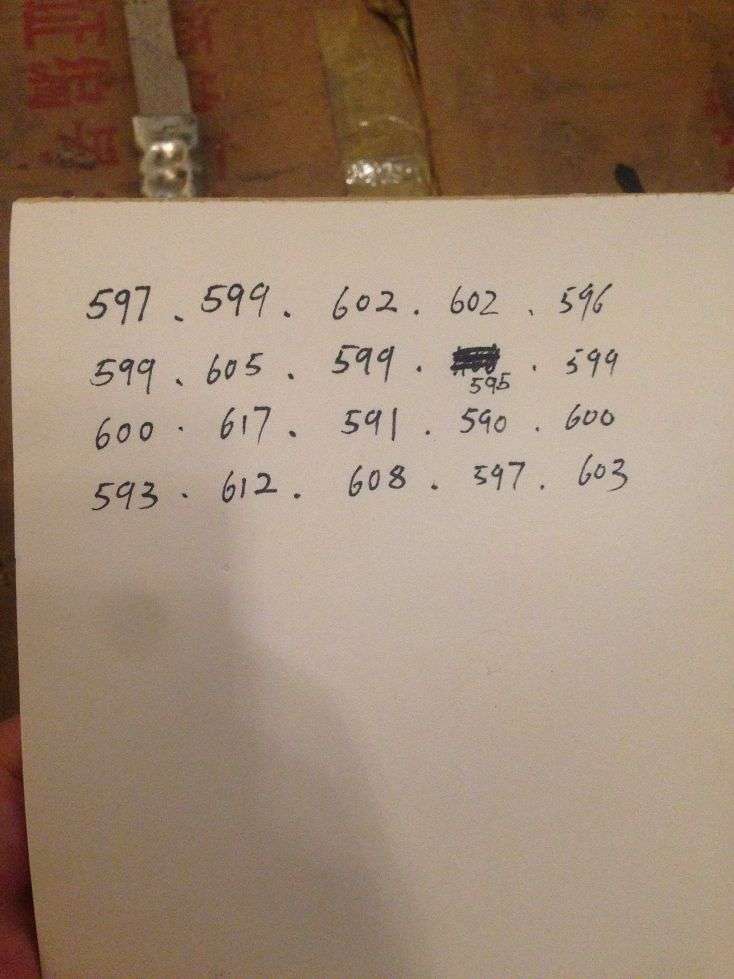 证
编
597 . 599 . 602 . 602 . 596
599 . 605 . 599 . 595 . 599
600 . 617 . 591 . 590 . 600
593 . 612 . 608 . 597 . 603